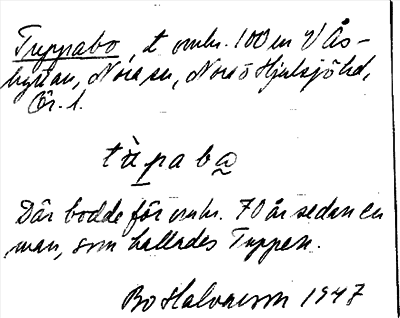 Tuppabo, t omkr. 100 m V Ås-
hyttan, Nora sn, Nora o Hjulsjö hd,
Ör. l.
tùpaba
Där bodde för omkr. 70 år sedan en
man, som kallades Tuppen.
Bo Halvarson 1947